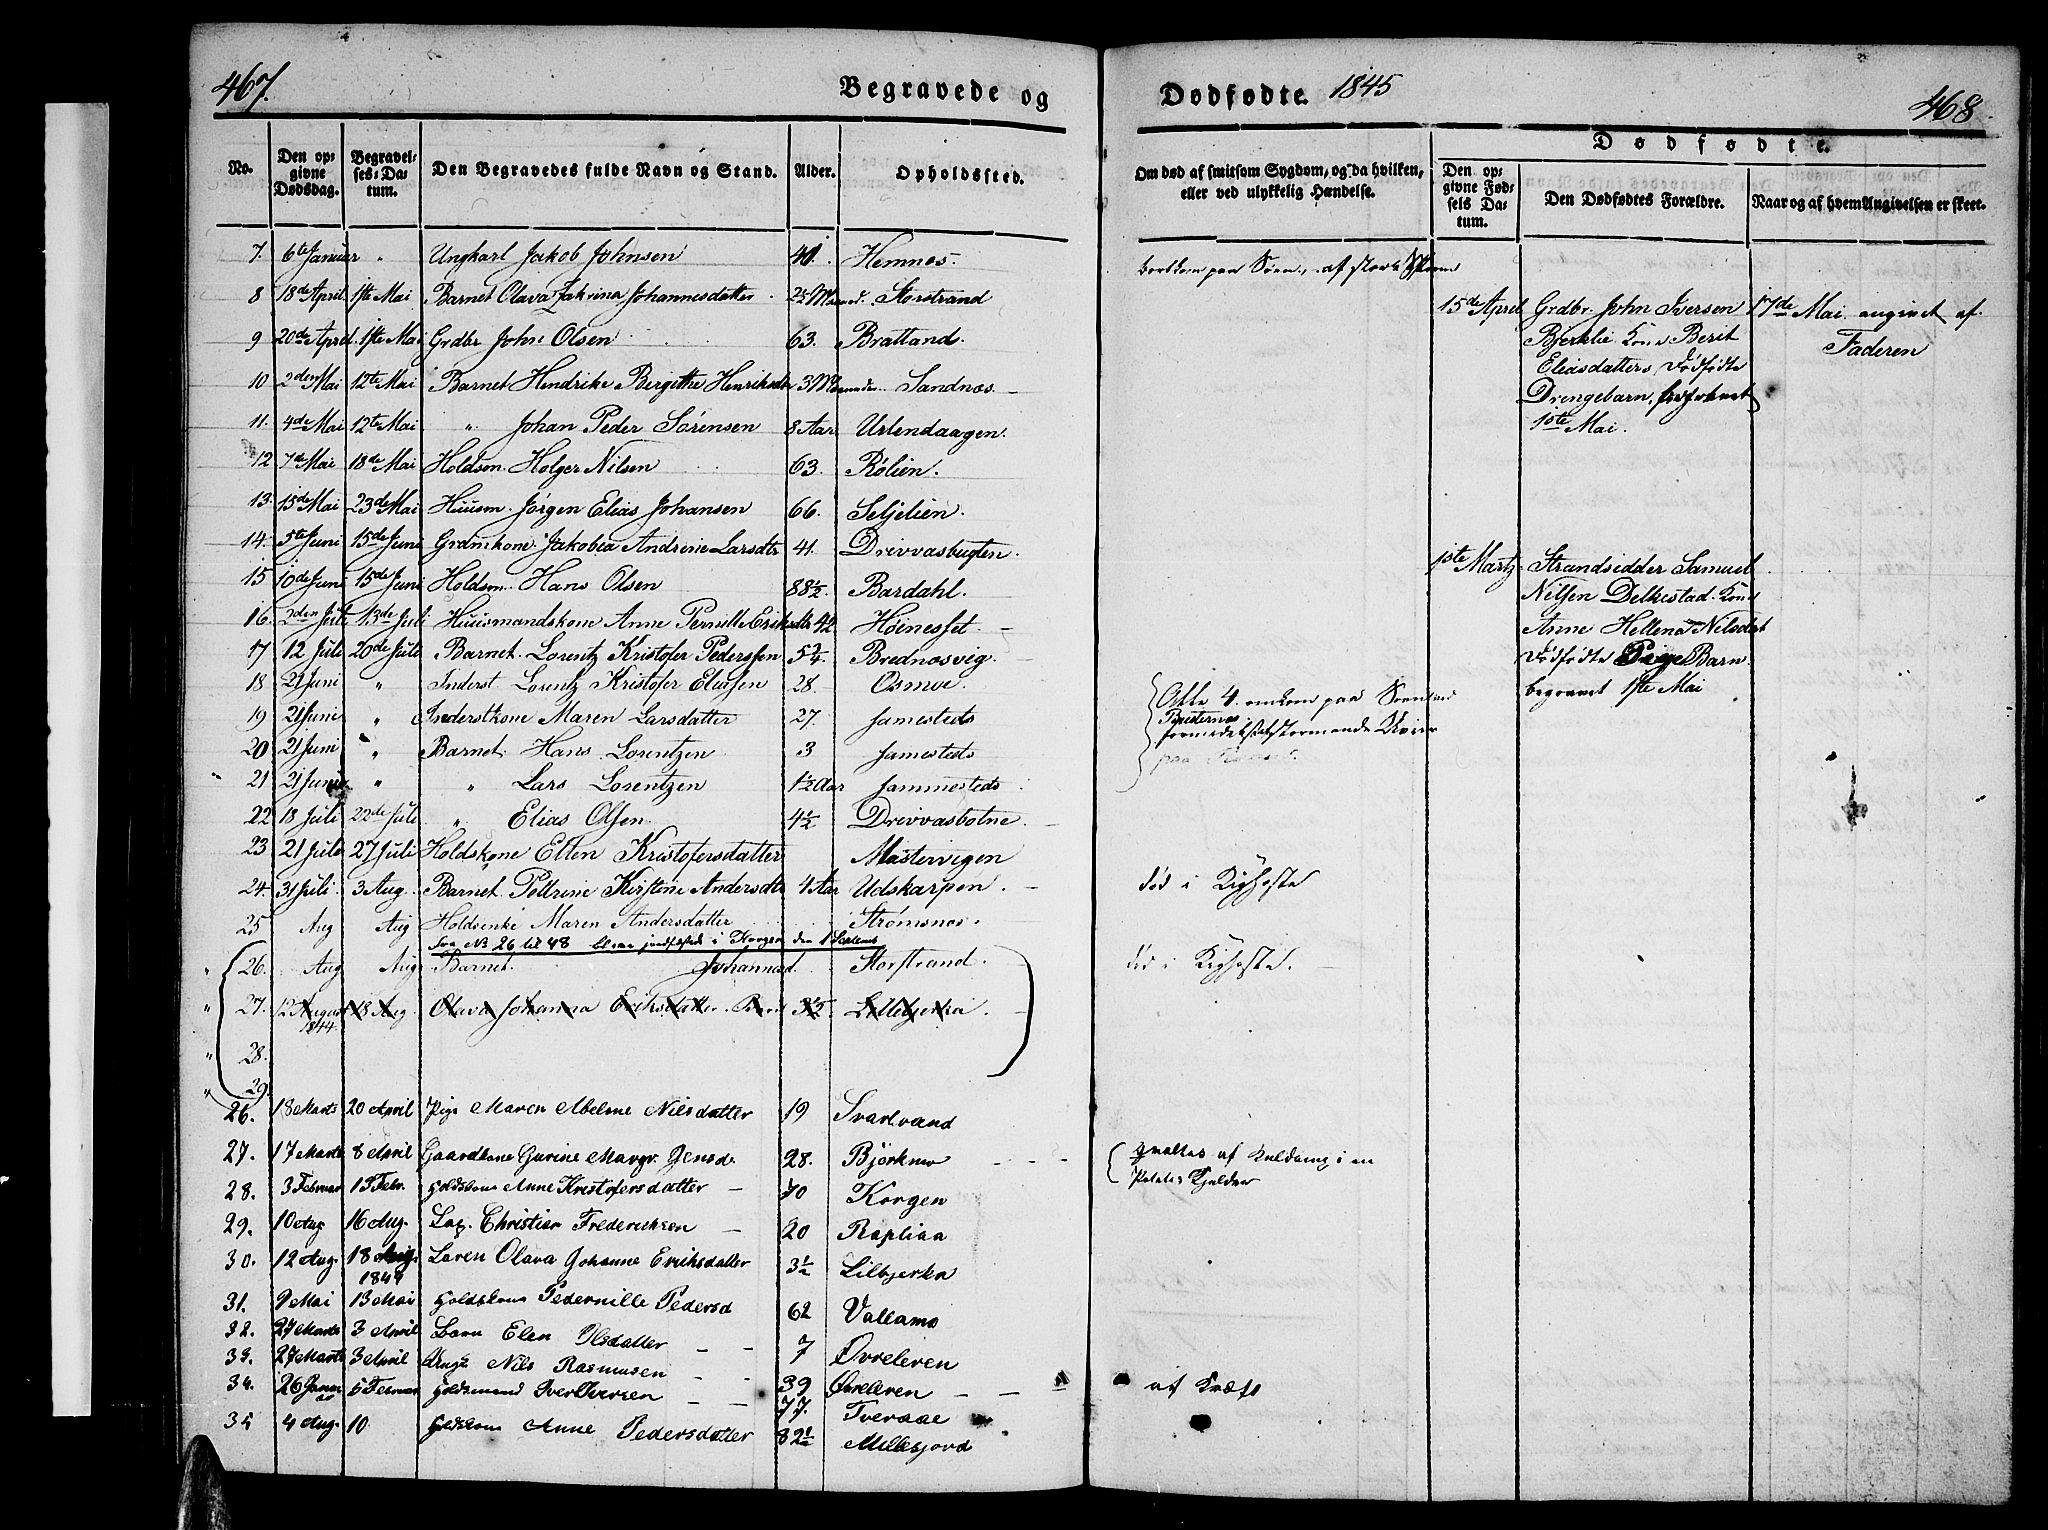 467.
Begravede og
Dødfødte. 1845
468.
No.
Den opgivne Dødsdag.
Begravelses-Datum.
Den Begravedes fulde Navn og Stand.
Alder.
Opholdssted.
Om død af smitsom Sygdom, og da hvilken, eller ved ulykkelig Hændelse.
Dødfødte.
Den opgivne Fødsels Datum.
Den Dødfødtes Forældre.
Naar og af hvem Angivelsen er skeet.
7. 6te Januar " Ungkarl Jakob Johnsen 41. Hemnes.
8 18de April 1ste Mai Barnet Olava Zakrina Johannesdatter Storstrand
9 20de April 1ste Mai Grdbr John Olsen 63. Brattland.
10 2den Mai 12te Mai Barnet Hendrike Bergitte Sandnæs
11. 4de Mai 12te Mai " Johan Peder Sörensen 8 Aar Urlendaagen.
12 7de Mai 18de Mai Holdsm. Holger Nilsen 63. Rølien.
13. 15de Mai 23de Mai Huusm. Jörgen Elias Johansen 66. Seljelien.
14. 5te Juni 15de Juni Grdmkone Jakobea Andrine Larsdtr 41. Drevvasbugten.
15 10de Juni 15de Juni Holdsm. Hans Olsen 88½ Bardahl.
16. 2den Juli 13de Juli Huusmandskone Anne Pernille Eriksdtr 42 Høinesset.
17 12 Juli 20de Juli Barnet. Lorentz Kristofer Pederssen Brednæsvig.
18 21 Juni " Inderst Lorentz Kristofer Eliassen 28. Osmoe.
19 21 Juni " Inderstkone Maren Larsdatter 27. Samesteds
20 21 Juni " Barnet Hans Lorentzen 3 Samesteds
21 21 Juni " " Lars Lorentzen 1½ Aar Sammesteds
22 18 Juli 22de Juli " Elias Olsen. 4½ Drevvasbotne.
23 21 Juli 27 Juli Holdskone Ellen Kristofersdatter Mastervigen
24. 31 Juli 3 Aug. Barnet Pettrine Kirstine Andersdtr 4 Aar Udskarpen.
25 Aug Aug Holdsenke Maren Andersdatter Strömsnes.
Fra No 26 til 48 den 1
26. Aug Aug Barnet. Johannesd. Storstrand.
27. 12 August 1844. 18 Aug. Olava Johanna Eriksdatter. 3½ Lillebjerka.
28.
29.
26. 18 Marts 20 April Pige Maren Abelone Nilsdatter 19 Svartvand
27. 17 Marts 8 April Gaardkone Gurine Margr. Jensd. 28. Björkmo
28. 3 Februar 13 Febr. Holdskone Anne Kristofersdatter 70 Korgen
29. 10 Aug 16 Aug. Christian Frederiksen 20 Rapliaa
30. 12 Aug. 18 Aug. 1844 Olava Johanne Eriksdatter 3½ Lilbjerka
31. 9 Mai 13 Mai Holdskone Pedernille Pedersd 62 Vallamo
32. 27 Marts 3 April Barn Elen Olsdatter 7 Øvreleren
33. 27 Marts 3 April Nils Rasmusen 39 Øvreleren
34. 26 Januar 5 Februar Holdsmand Iver Iversen 77. Tveraae
35 4 Aug. 10 Holdskone Anne Pedersdatter 82½ Millesjord
bortkom paa Søen, af stærk Storm
Alle 4. omkom paa Søen ved
formedelst stormende Veir
død i Kighoste
død i Kighoste.
Qvaltes af Kuldamp i en
Potetes Kjelder
af Kræft
15de April
Grdbr. John Iversen
Bjerklie Kone Berit
Eliasdatters dødfødte
Drengebarn, begravet
1ste Mai.
17de Mai angivet af
Faderen
1ste Martz
Strandsidder Samuel
Nilsen Delkestad Kone
Anne Hellena Nilsdtrs
dødfødte Pige Barn.
begravet 1ste Mai